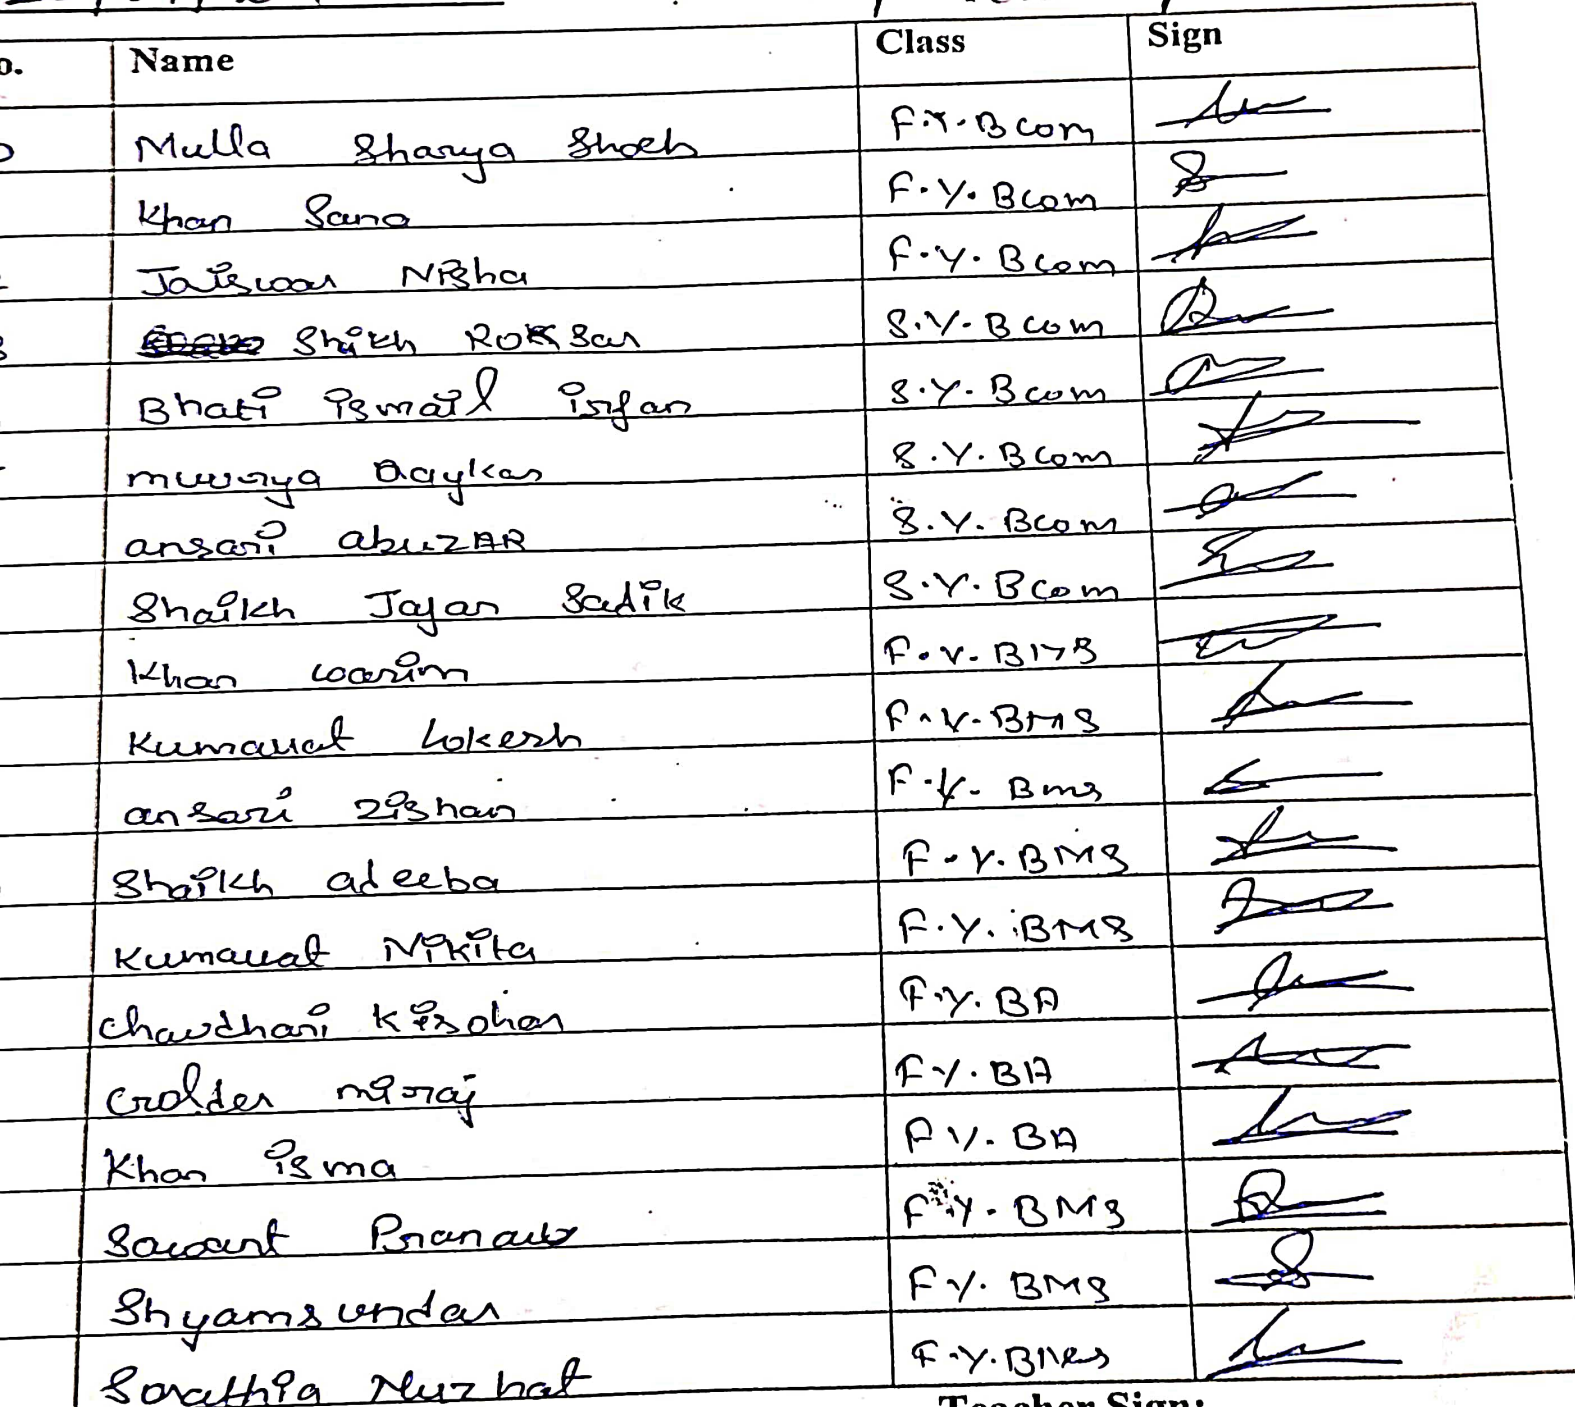 Name Class Sign
Mulla Sharya Shoeb F.Y.Bcom
Khan Sana F.Y.Bcom
Jaiswar Nisha F.Y.Bcom
Shikh ROKSar S.Y.Bcom
Bhati ismail irfan S.Y.Bcom
S.Y.Bcom
ansari abuzAR S.Y.Bcom
Shaikh Jafar Sadik S.Y.Bcom
Khan wasim F.Y.BMS
Kumavat Lokesh F.Y.BMS
ansari zishan F.Y.Bms
Shaikh adeeba F.Y.BMS
Kumavat Nikita F.Y.BMS
chaudhari Kishor F.Y.BA
miraj FY.BA
Khan isma FY.BA
Sawant Pranav F.Y.BMS
Shyamsundar FY.BMS
Sarathia Nuzhat F.Y.BMS
Teacher Sign: